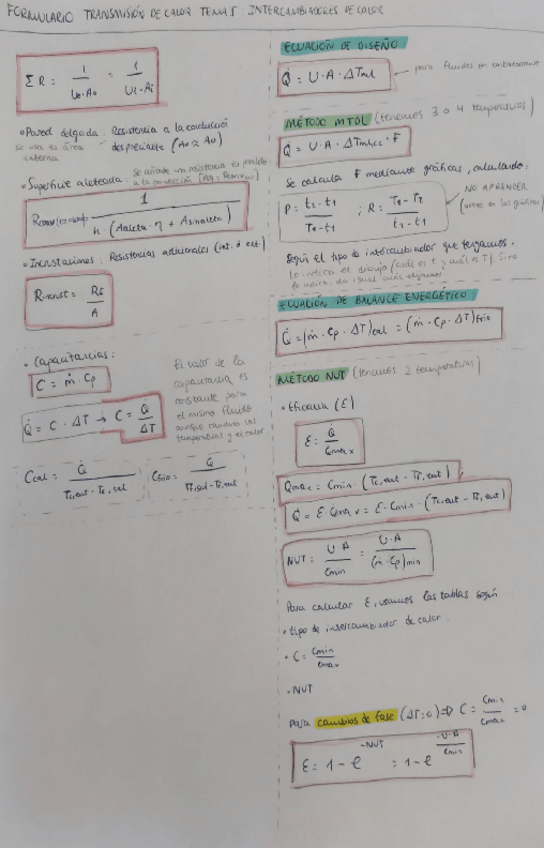 FORMULARIO TRANSMISIÓN DE CALOR TEMA 5: INTERCAMBIADORES DE CALOR
ΣR = 1/(Uo·Ao) = 1/(Ui·Ai)
• Pared delgada: Resistencia a la conducción
se usa el área interna
despreciable (Ao ≈ Ai)
• Superficie aleteada: Se añade una resistencia en paralelo
a la convección
Rconv = 1/(h·(Aaleta·η + Asinaleta))
• Incrustaciones: Resistencias adicionales (int. ó ext.)
Rincrust = Rf/A
• Capacitancias:
C = ṁ·Cp
Q̇ = C·ΔT → C = Q̇/ΔT
El valor de la
capacitancia es
constante para
el mismo fluido
aunque cambien las
temperaturas y el calor
Ccal = Q̇/(Tc,ent - Tc,sal)
Cfrio = Q̇/(Tf,sal - Tf,ent)
ECUACIÓN DE DISEÑO
Q̇ = U·A·ΔTml
para fluidos en contracorriente
MÉTODO MTDL (tenemos 3 o 4 temperaturas)
Q̇ = U·A·ΔTml,cc·F
Se calcula F mediante gráficas, calculando:
P = (t2-t1)/(T1-t1) ; R = (T1-T2)/(t2-t1)
NO APRENDER
(viene en las gráficas)
Según el tipo de intercambiador que tengamos.
Lo indica el dibujo (cuál es t y cuál es T). Si no
lo indica, da igual cuál elijamos
ECUACIÓN DE BALANCE ENERGÉTICO
Q̇ = (ṁ·Cp·ΔT)cal = (ṁ·Cp·ΔT)frio
MÉTODO NUT (tenemos 2 temperaturas)
• Eficacia (ε)
ε = Q̇/Qmax
Qmax = Cmin·(Tc,ent - Tf,ent)
Q̇ = ε·Qmax = ε·Cmin·(Tc,ent - Tf,ent)
NUT = U·A/Cmin = U·A/(ṁ·Cp)min
Para calcular ε, usamos las tablas según
• tipo de intercambiador de calor
• C = Cmin/Cmax
• NUT
Para cambios de fase (ΔT=0) ⇒ C = Cmin/Cmax = 0
ε = 1 - e^(-NUT) = 1 - e^(-U·A/Cmin)